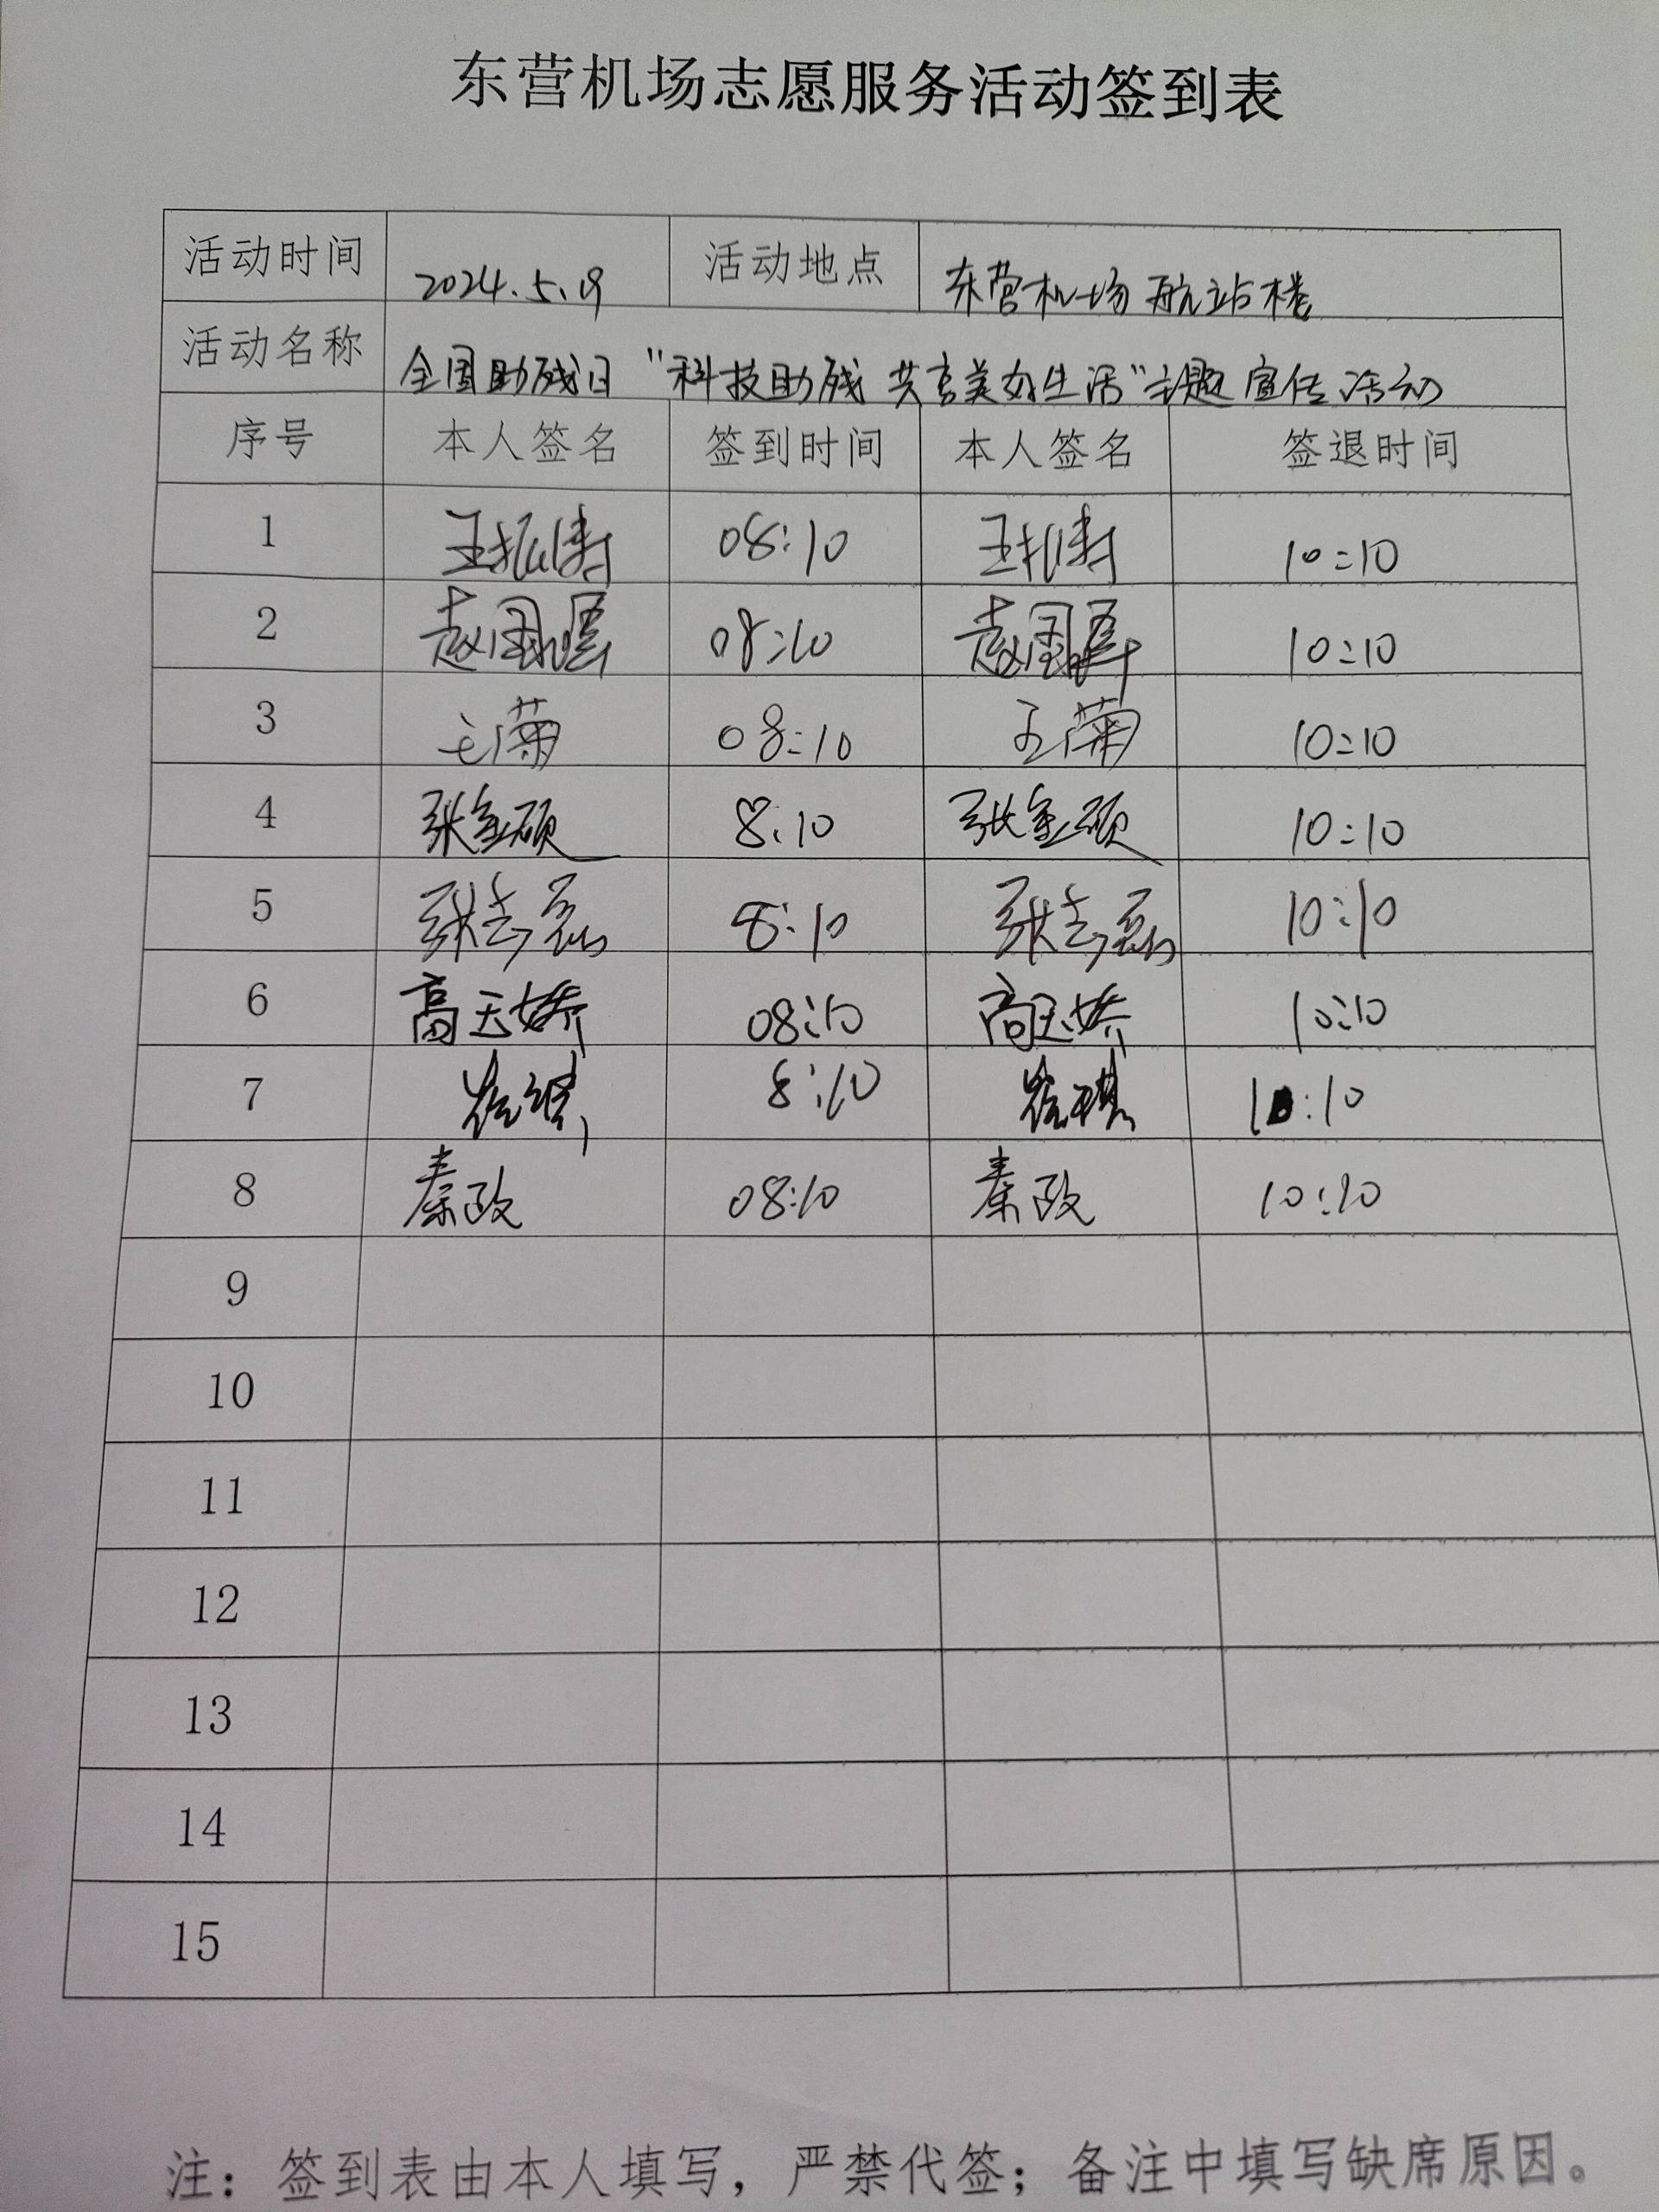 东营机场志愿服务活动签到表
活动时间 2024.5.19 活动地点 东营机场航站楼
活动名称 全国助残日“科技助残 共享美好生活”主题宣传活动
序号 本人签名 签到时间 本人签名 签退时间
1 王振涛 08:10 王振涛 10:10
2 赵国 08:10 赵国 10:10
3 王菊 08:10 王菊 10:10
4 张金硕 8:10 张金硕 10:10
5 张志磊 8:10 张志磊 10:10
6 高玉娇 08:10 高玉娇 10:10
7 8:10 10:10
8 秦政 08:10 秦政 10:10
9
10
11
12
13
14
15
注：签到表由本人填写，严禁代签；备注中填写缺席原因。